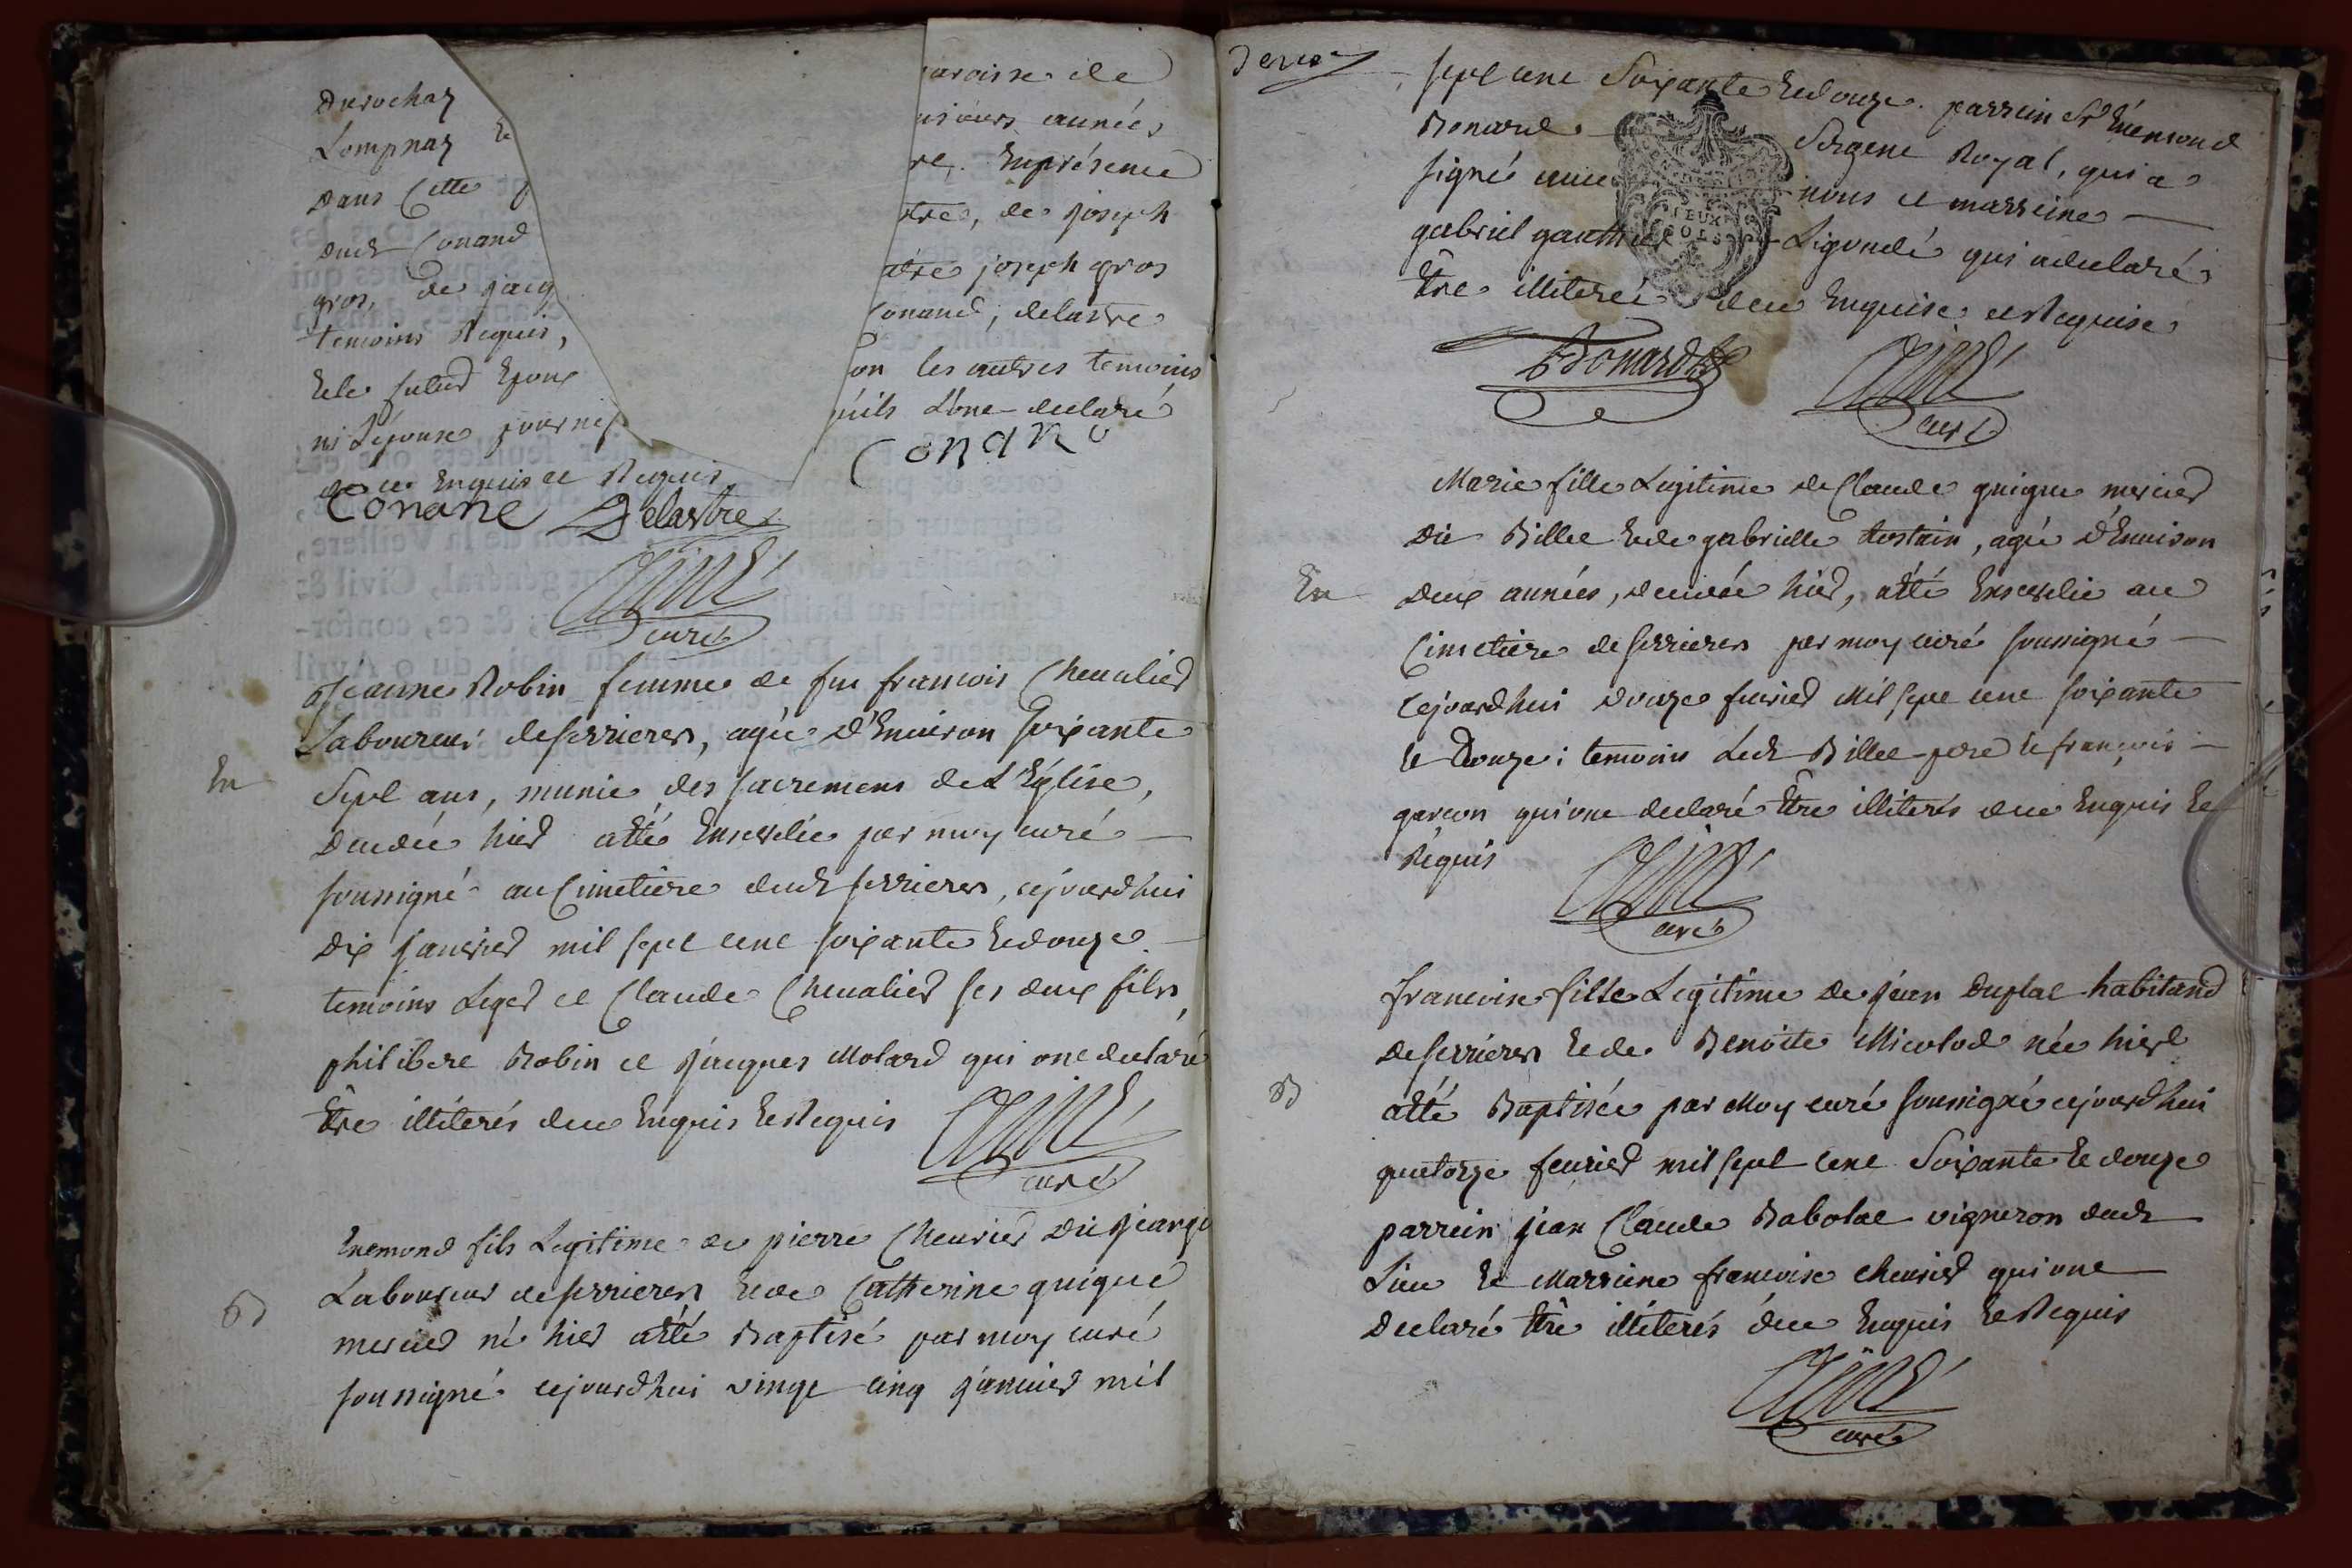 Durochaz
Lompnaz Et
dans Cette
dudt Conand
gros, de jacq
temoins Requis,
Et le futur Epoux
ni L'épouse pour n'es
de ce Enquis et Requis
aroisse de
usieurs années
re, En présence
tre, de joseph
atre joseph gros
Conand, delastre
on les autres temoins
uils L'ont declaré
Conand
Conant Delastre
curé
En
Jeanne Robin femme de feu francois Chevalier
Laboureur de serrieres, agée d'Environ soixante
Sept ans, munie des sacremens de L'Eglise,
decedée hier atté Ensevelie par moy curé
soussigné au Cimetiere dudt serrieres, cejourdhui
dix janvier mil sept cent soixante Et douze
temoins Leger et Claude Chevalier ses deux fils,
philibert Robin et jacques Molard qui ont declaré
Etre illiterés de ce Enquis Et Requis
curé
B
Enemond fils Legitime de pierre Chevrier dit
Laboureur de serrieres Et de Catherine guigue
mercier né hier atté Baptisé par moy curé
soussigné cejourdhui vingt cinq janvier mil
sept cent Soixante Et douze. parrein Sr Enemond
Bonard Sergent Royal, qui a
signé avec nous et marreine
gabriel Ligondé qui a declaré
Etre illiteré de ce Enquise et Requise
Bonard
curé
En
Marie fille Legitime de Claude guigue mercier
dit Billet Et de gabrielle tostain, agée d'Environ
deux années, decedée hier, atté Ensevelie au
Cimetiere de serrieres par moy curé soussigné
cejourdhui douze fevrier Mil sept cent soixante
Et Douze; temoins Ledt Billet pere Et francois
garcon qui ont declaré Etre illiterés de ce Enquis Et
Requis
curé
B
francoise fille Legitime de jean duplat habitand
de serrieres Et de Benoite Micolod née hier
atté Baptisée par Moy curé soussigné cejourdhui
quatorze fevrier mil sept cent Soixante Et douze
parrein jean Claude Babolat vigneron dudt
Lieu Et Marreine francoise chevrier qui ont
Declaré Etre illiterés de ce Enquis Et Requis
curé